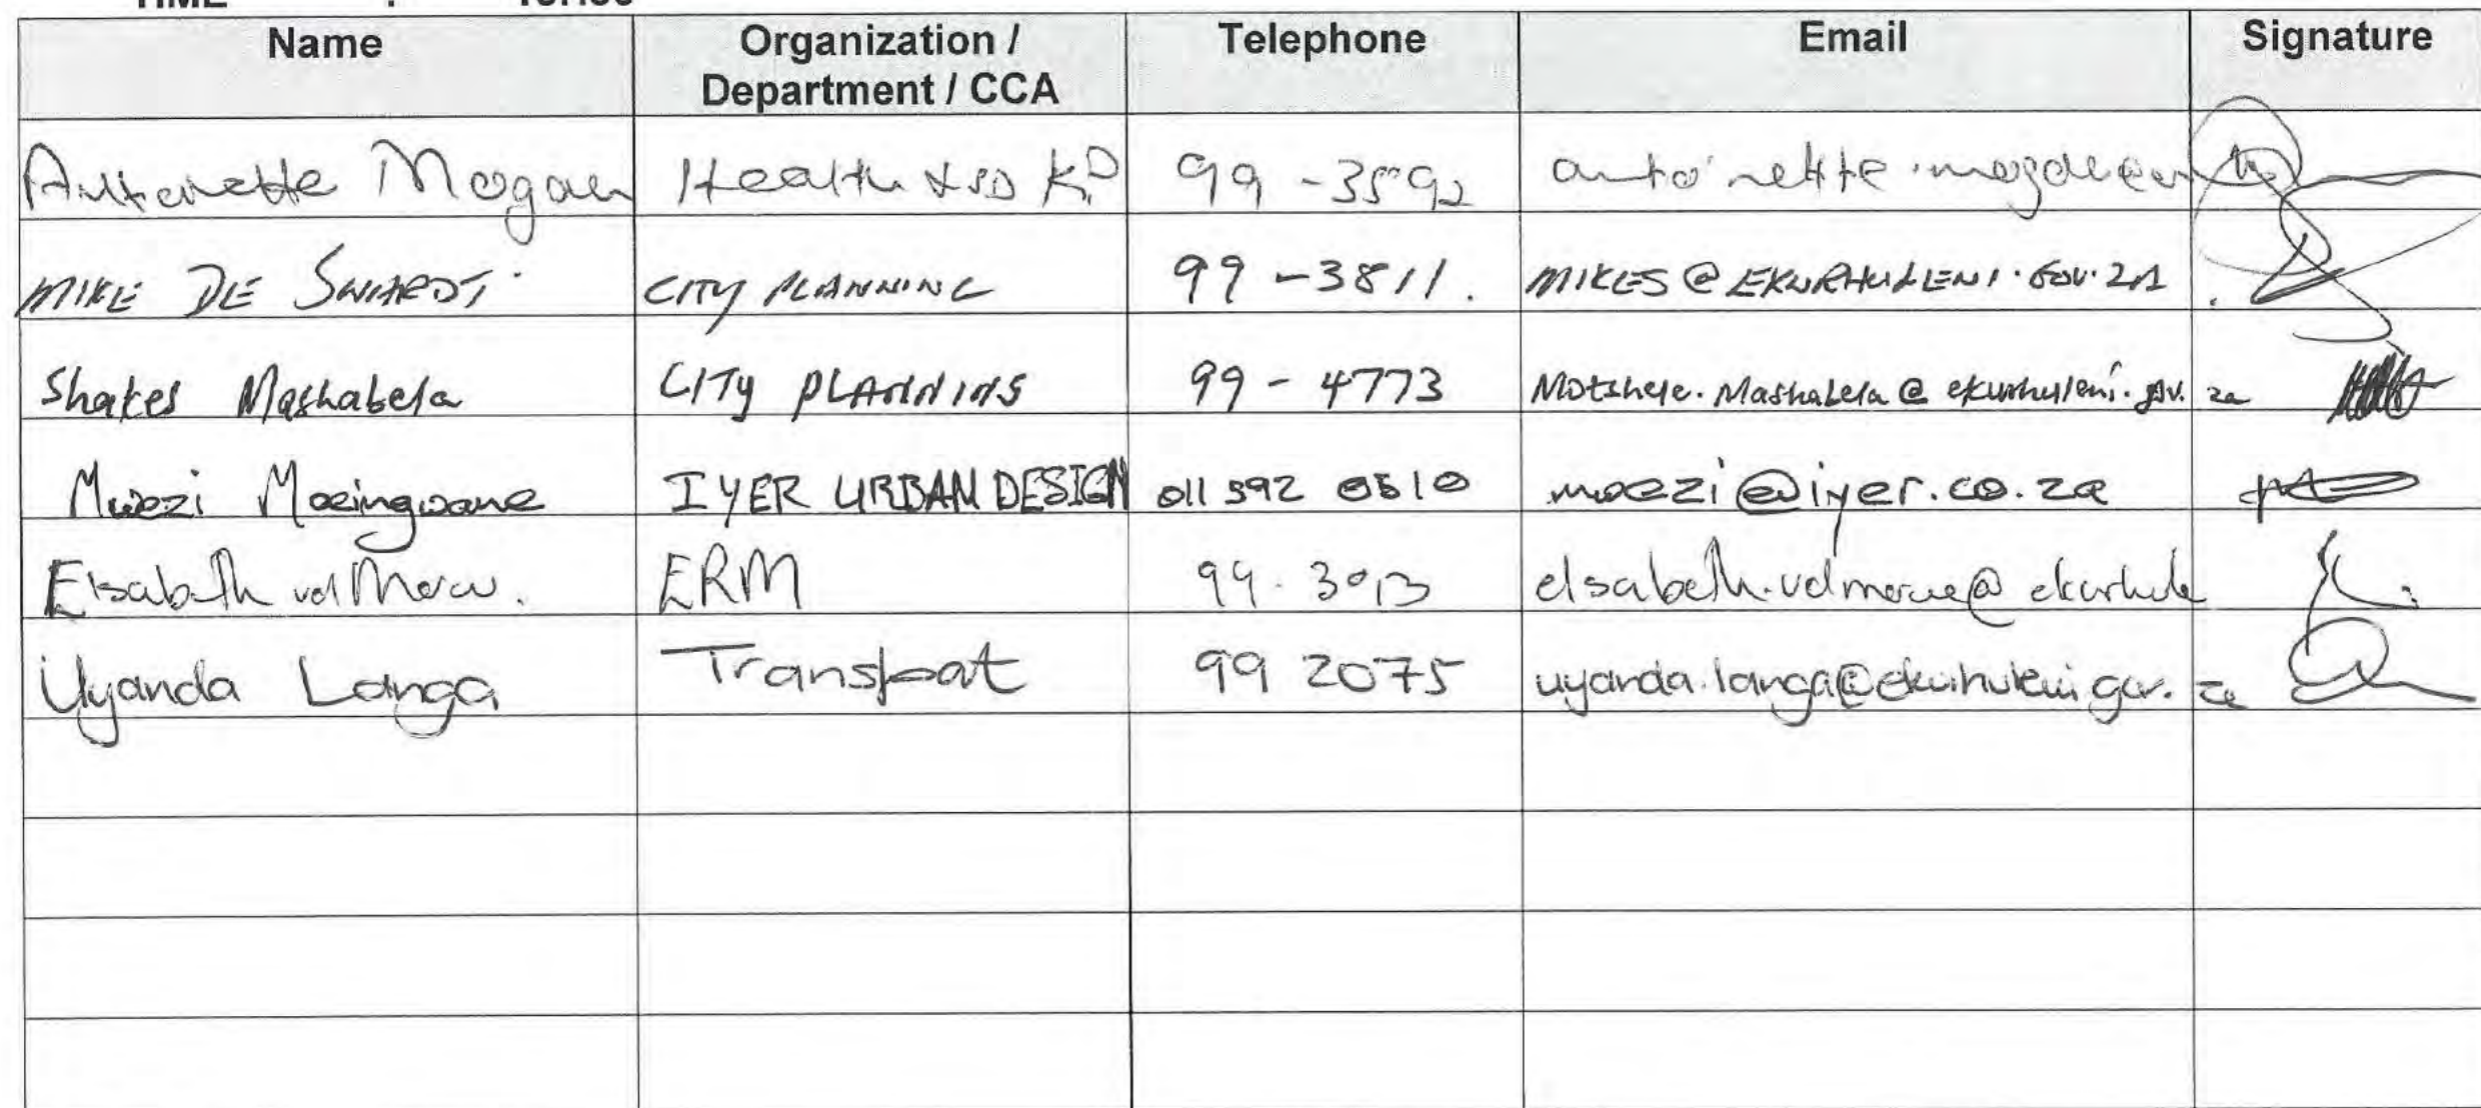 Name Organization / Telephone Email Signature
Department / CCA
Antoinette Mogan Health & SD 99 - 3592
MIKE DE SWARDT CITY PLANNING 99 - 3811. MIKES@EKURHULENI.GOV.ZA
Shakes Mashabela CITY PLANNING 99 - 4773 Motshele.Mashabela@ekurhuleni.gov.za
Mwezi Mzingwane IYER URBAN DESIGN 011 592 0510 mwezi@iyer.co.za
Elsabeth vd Merwe. ERM 99.3013 elsabeth.vdmerwe@ekurhule
Uyanda Langa Transport 99 2075 uyanda.langa@ekurhuleni.gov.za